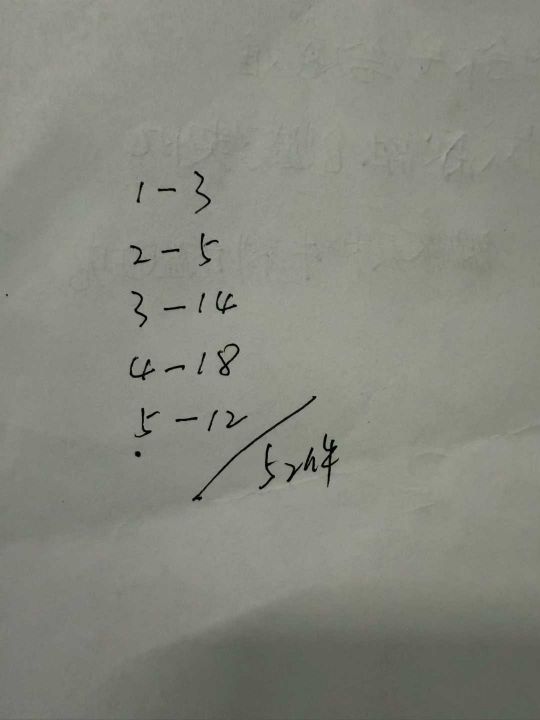 1-3
2-5
3-14
4-18
5-12